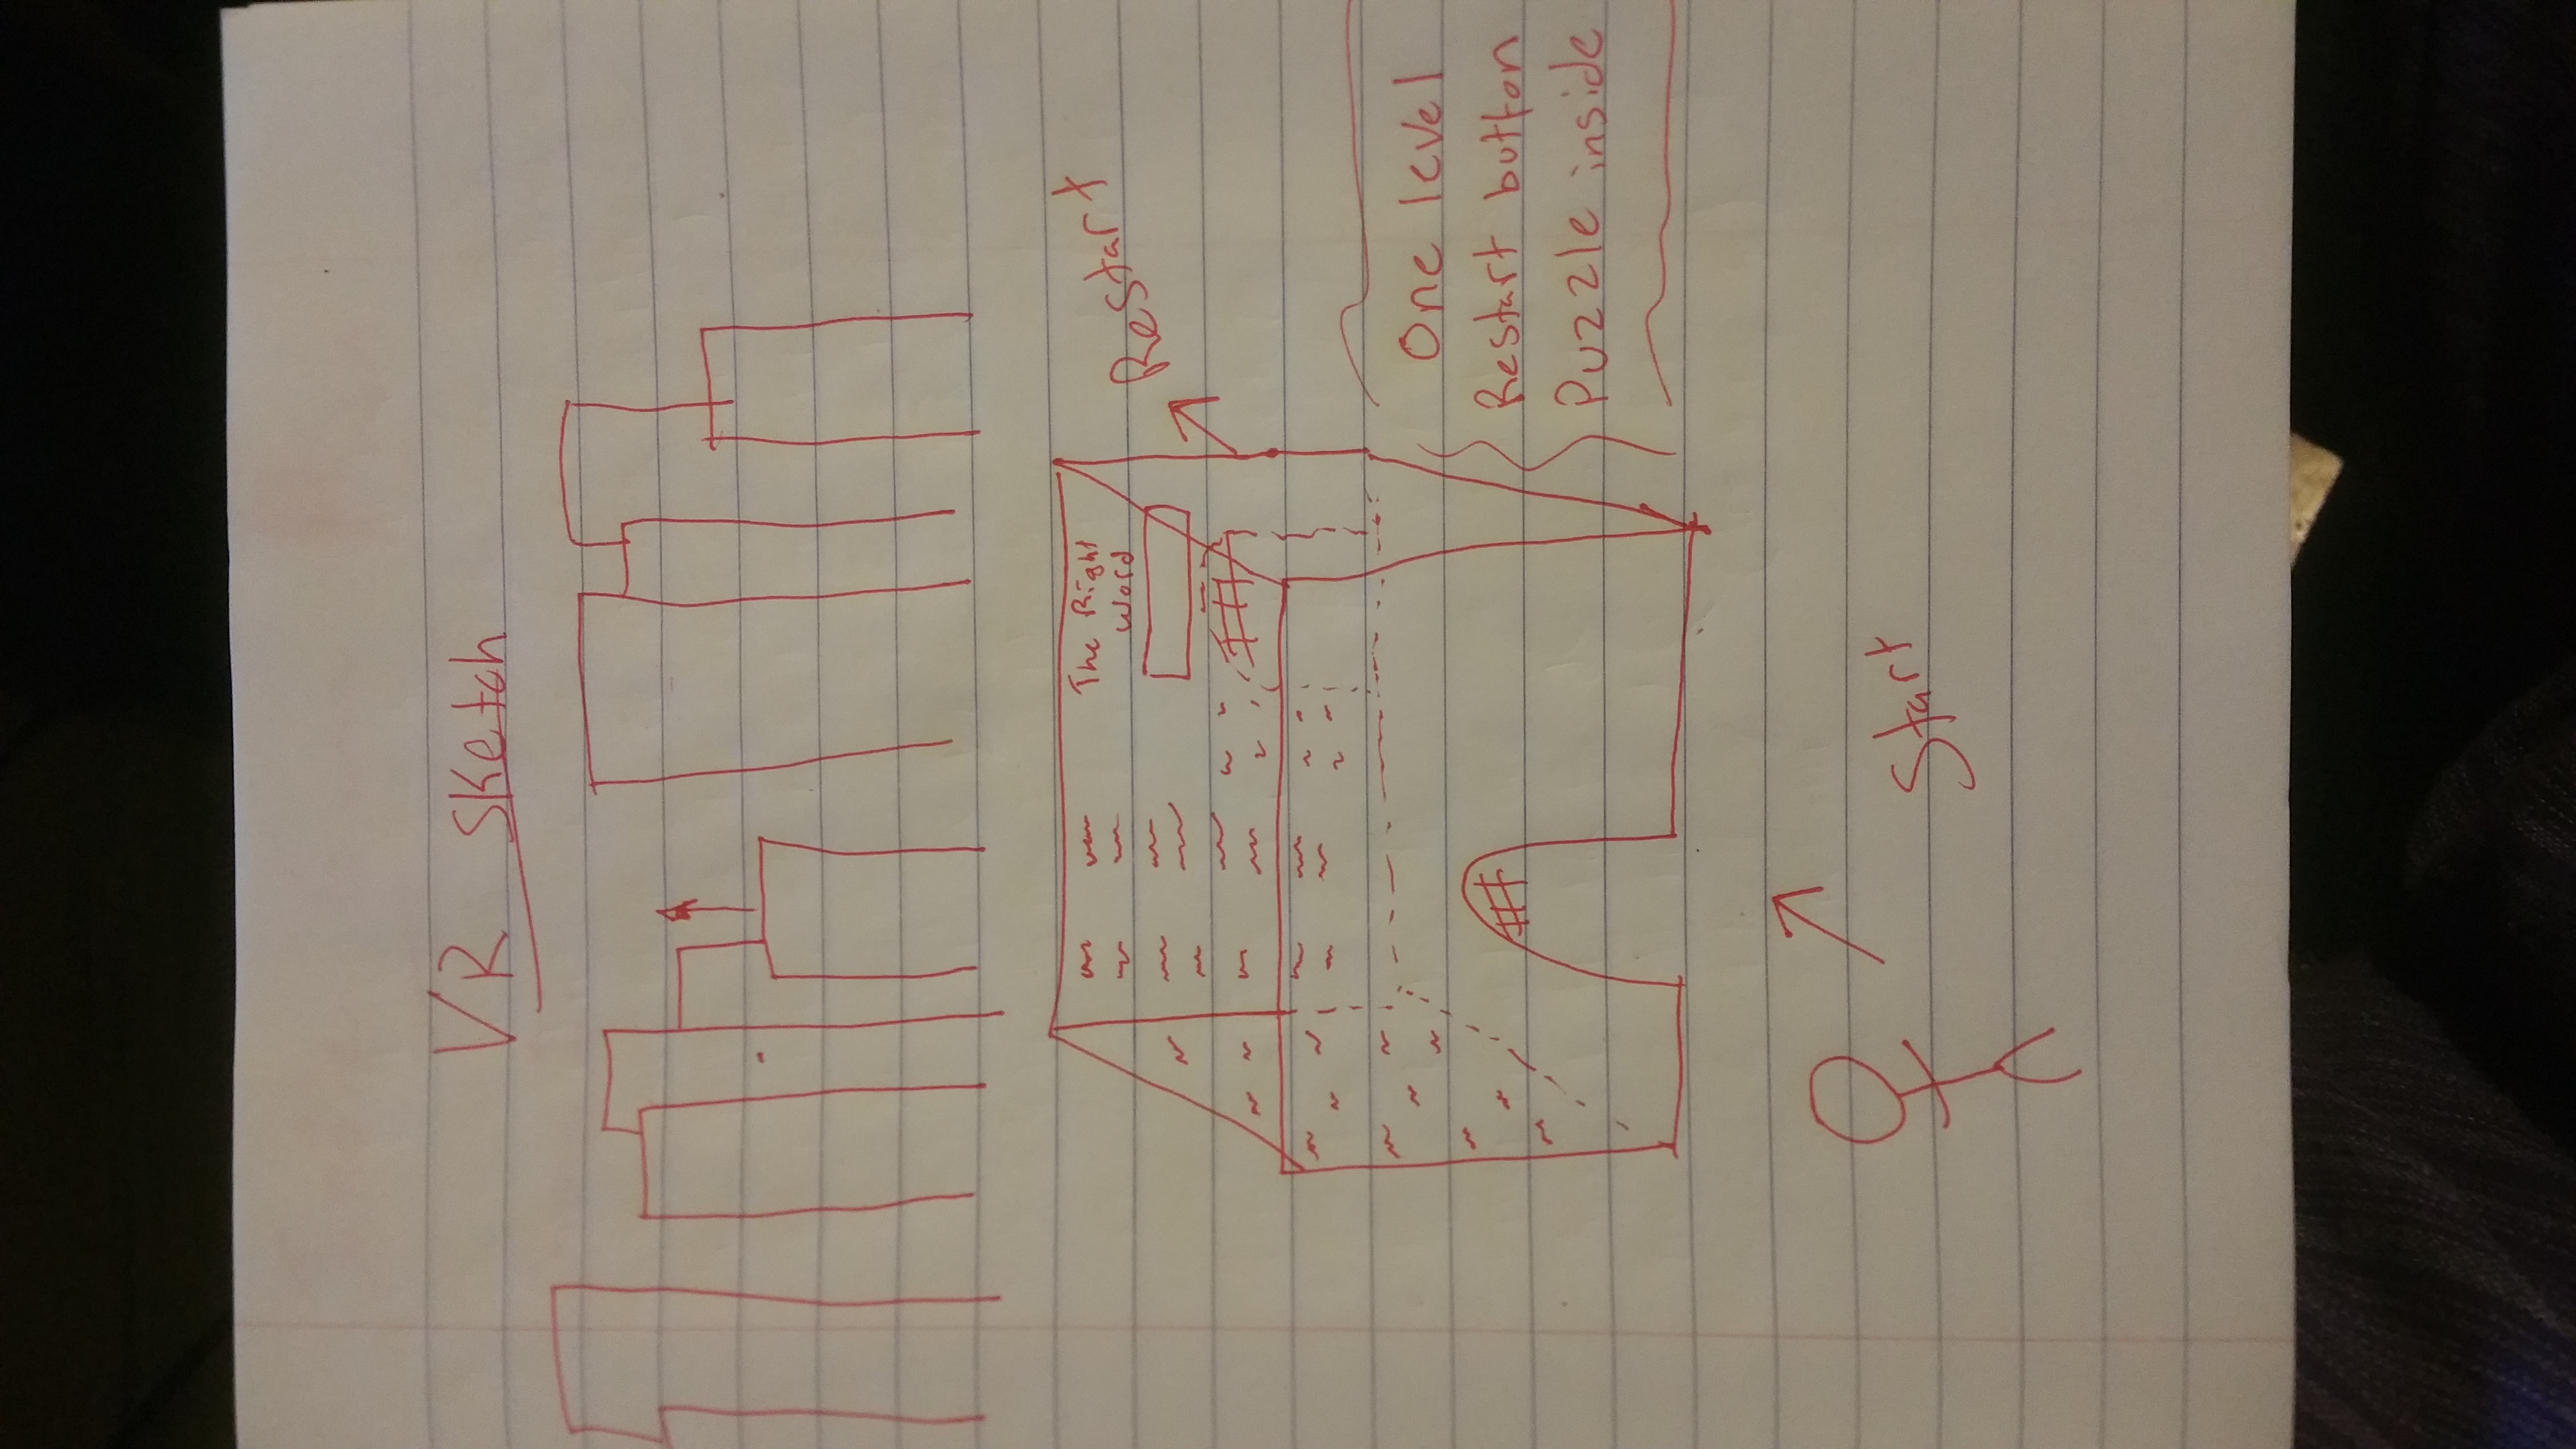 VR Sketch
The Right
Word
Restart
One level
Restart button
Puzzle inside
Start